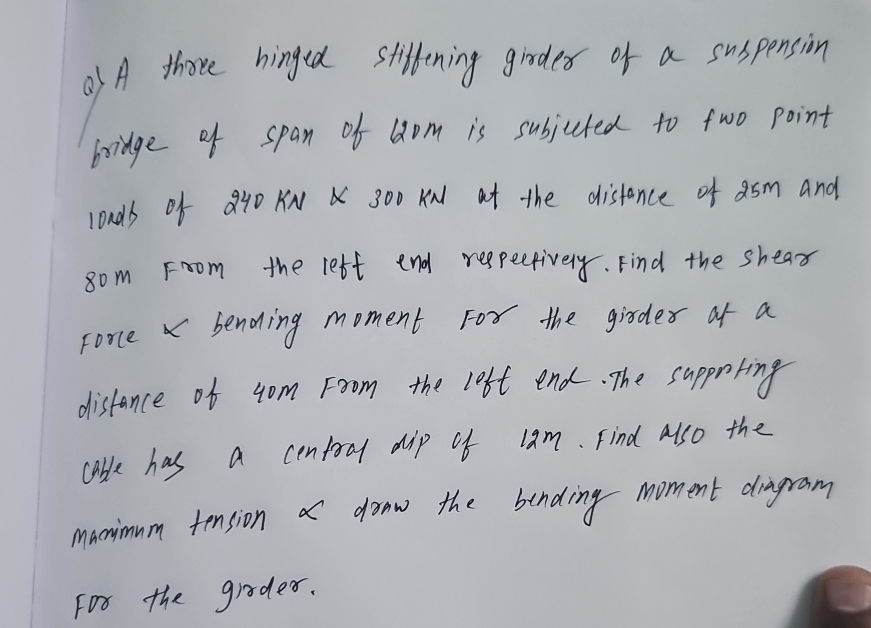 Q) A three hinged stiffening girder of a suspension
bridge of span of 120m is subjected to two point
loads of 240 KN & 300 KN at the distance of 25m and
80m From the left end respectively. Find the shear
Force & bending moment For the girder at a
distance of 40m From the left end. The supporting
cable has a central dip of 12m. Find also the
maximum tension & draw the bending moment diagram
For the girder.